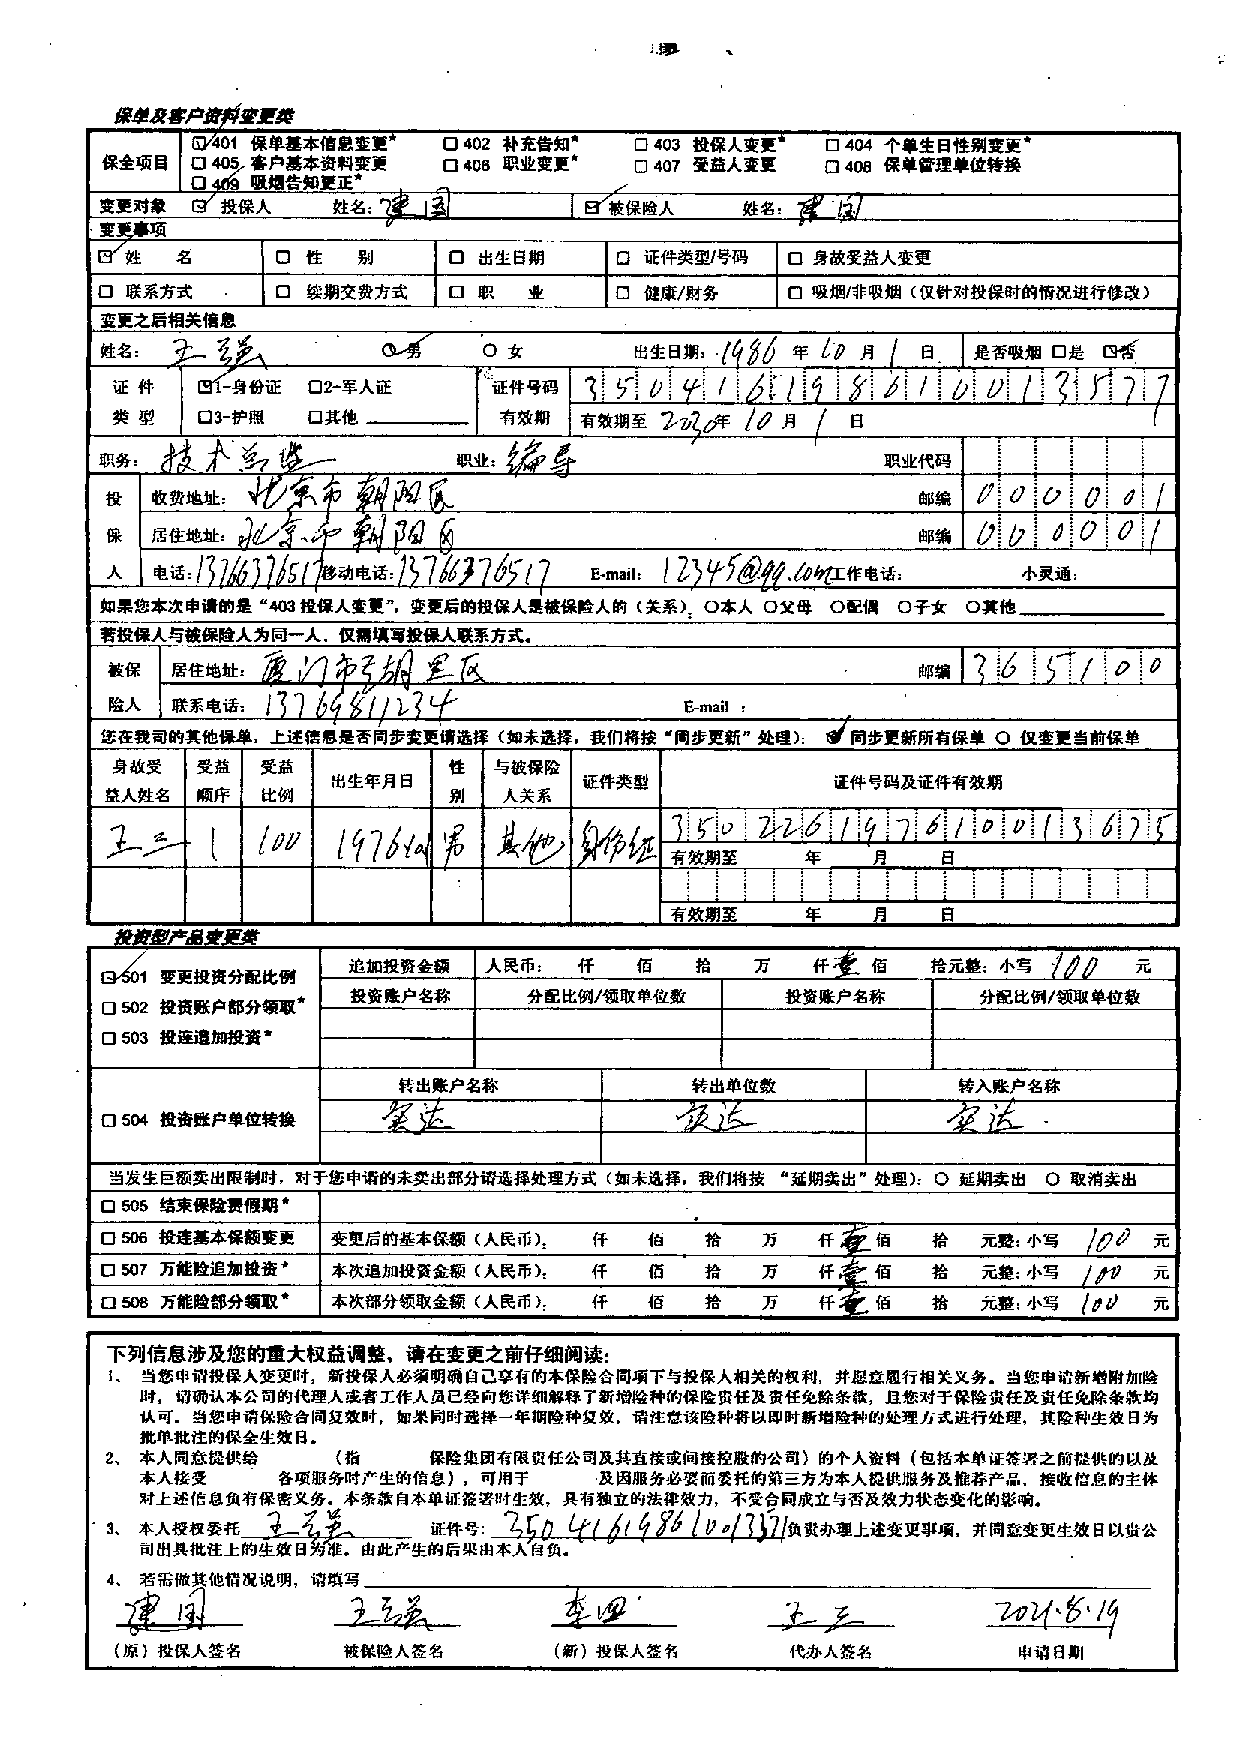 保单及客户资料变更类
保全项目
☑401 保单基本信息变更* □402 补充告知* □403 投保人变更* □404 个单生日性别变更*
□405 客户基本资料变更 □406 职业变更* □407 受益人变更 □408 保单管理单位转换
□409 吸烟告知更正*
变更对象 ☑投保人 姓名:建国 ☑被保险人 姓名:建国
变更事项
☑姓 名 □性 别 □出生日期 □证件类型/号码 □身故受益人变更
□联系方式 □续期交费方式 □职 业 □健康/财务 □吸烟/非吸烟(仅针对投保时的情况进行修改)
变更之后相关信息
姓名:王 男 ○女 出生日期:1986年10月1日 是否吸烟 □是 ☑否
证件类型 ☑1-身份证 □2-军人证 证件号码 350416198610013577
□3-护照 □其他 有效期 有效期至2030年10月1日
职务:技术总监 职业:编导 职业代码
投保人 收费地址:北京市朝阳区 邮编 000001
居住地址:北京市朝阳区 邮编 000001
电话:13766376517 移动电话:13766376517 E-mail: 12345@qq.com 工作电话: 小灵通:
如果您本次申请的是“403投保人变更”,变更后的投保人是被保险人的(关系):○本人 ○父母 ○配偶 ○子女 ○其他
若投保人与被保险人为同一人,仅需填写投保人联系方式。
被保险人 居住地址:厦门市 邮编 365100
联系电话:13769811234 E-mail:
您在我司的其他保单,上述信息是否同步变更请选择(如未选择,我们将按“同步更新”处理): 同步更新所有保单 ○仅变更当前保单
身故受益人姓名 受益顺序 受益比例 出生年月日 性别 与被保险人关系 证件类型 证件号码及证件有效期
王三 1 100 1976 男 其他 身份证 350226197610013675
有效期至 年 月 日
有效期至 年 月 日
投资型产品变更类
☑501 变更投资分配比例
□502 投资账户部分领取*
□503 投连追加投资*
追加投资金额 人民币: 仟 佰 拾 万 仟壹佰 拾元整:小写 100 元
投资账户名称 分配比例/领取单位数 投资账户名称 分配比例/领取单位数
□504 投资账户单位转换
转出账户名称 转出单位数 转入账户名称
安达 安达 安达
当发生巨额卖出限制时,对于您申请的未卖出部分请选择处理方式(如未选择,我们将按“延期卖出”处理):○延期卖出 ○取消卖出
□505 结束保险费假期*
□506 投连基本保额变更 变更后的基本保额(人民币): 仟 佰 拾 万 仟壹佰 拾 元整:小写 100 元
□507 万能险追加投资* 本次追加投资金额(人民币): 仟 佰 拾 万 仟壹佰 拾 元整:小写 100 元
□508 万能险部分领取* 本次部分领取金额(人民币): 仟 佰 拾 万 仟壹佰 拾 元整:小写 100 元
下列信息涉及您的重大权益调整,请在变更之前仔细阅读:
1、当您申请投保人变更时,新投保人必须明确自己享有的本保险合同项下与投保人相关的权利,并愿意履行相关义务。当您申请新增附加险
时,请确认本公司的代理人或者工作人员已经向您详细解释了新增险种的保险责任及责任免除条款,且您对于保险责任及责任免除条款均
认可。当您申请保险合同复效时,如果同时选择一年期险种复效,请注意该险种将以即时新增险种的处理方式进行处理,其险种生效日为
批单批注的保全生效日。
2、本人同意提供给 (指 保险集团有限责任公司及其直接或间接控股的公司)的个人资料(包括本单证签署之前提供的以及
本人接受 各项服务时产生的信息),可用于 及因服务必要而委托的第三方为本人提供服务及推荐产品,接收信息的主体
对上述信息负有保密义务。本条款自本单证签署时生效,具有独立的法律效力,不受合同成立与否及效力状态变化的影响。
3、本人授权委托 王 证件号: 负责办理上述变更事项,并同意变更生效日以贵公
司出具批注上的生效日为准。由此产生的后果由本人自负。
4、若需做其他情况说明,请填写
建国 王 李四 王三 2021.8.19
(原)投保人签名 被保险人签名 (新)投保人签名 代办人签名 申请日期